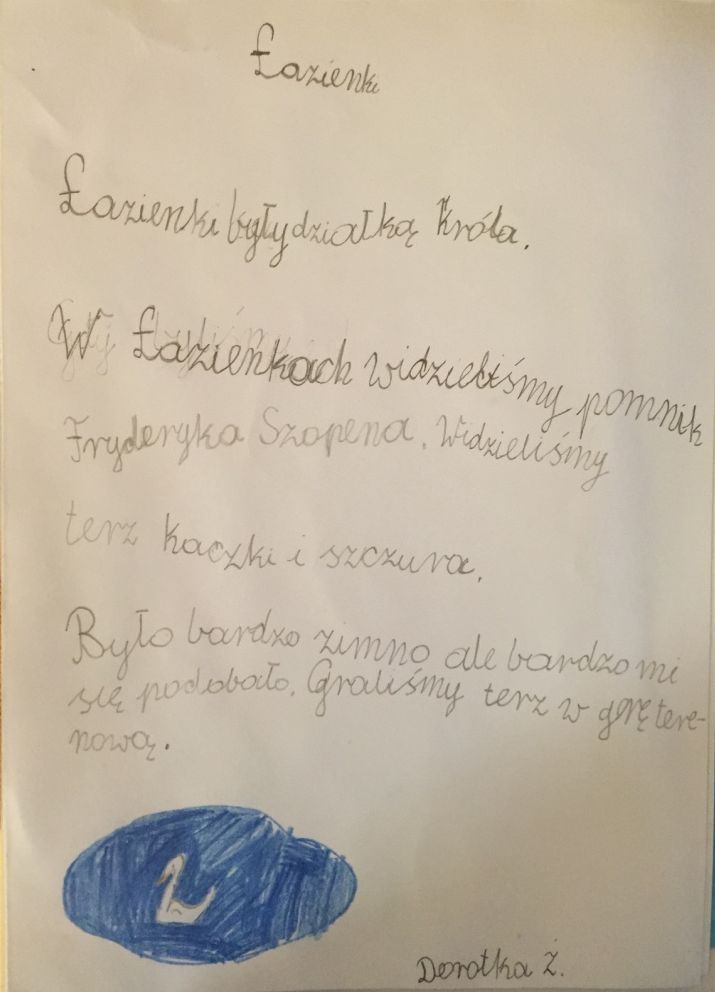 Łazienki
Łazienki były działką Króla.
W Łazienkach widzieliśmy pomnik
Fryderyka Szopena. Widzieliśmy
terz kaczki i szczura.
Było bardzo zimno ale bardzo mi
się podobało. Graliśmy terz w grę tere-
nową.
Dorotka Ż.